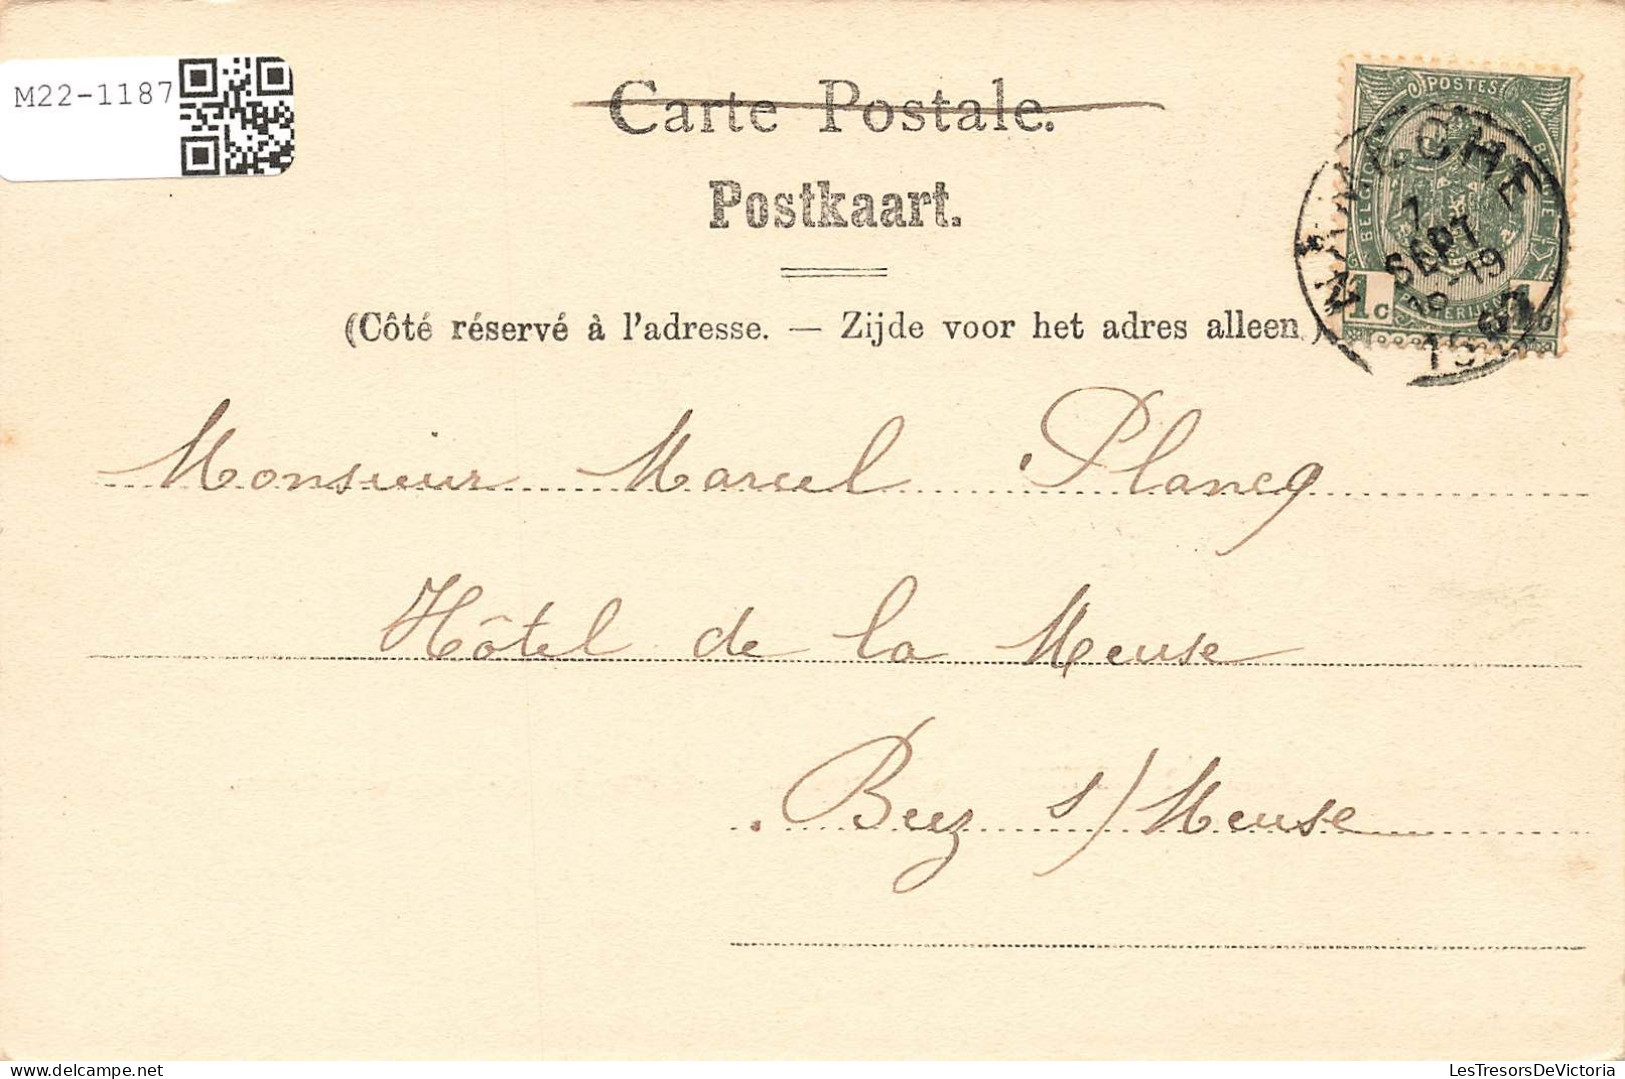 M22-1187
Carte Postale.
Postkaart.
(Côté réservé à l'adresse. — Zijde voor het adres alleen)
POSTES
BELGIQUE BELGIE
1c
7
SEPT
18-19
Monsieur Marcel Plancq
Hôtel de la Meuse
Beez s/Meuse
LesTresorsDeVictoria